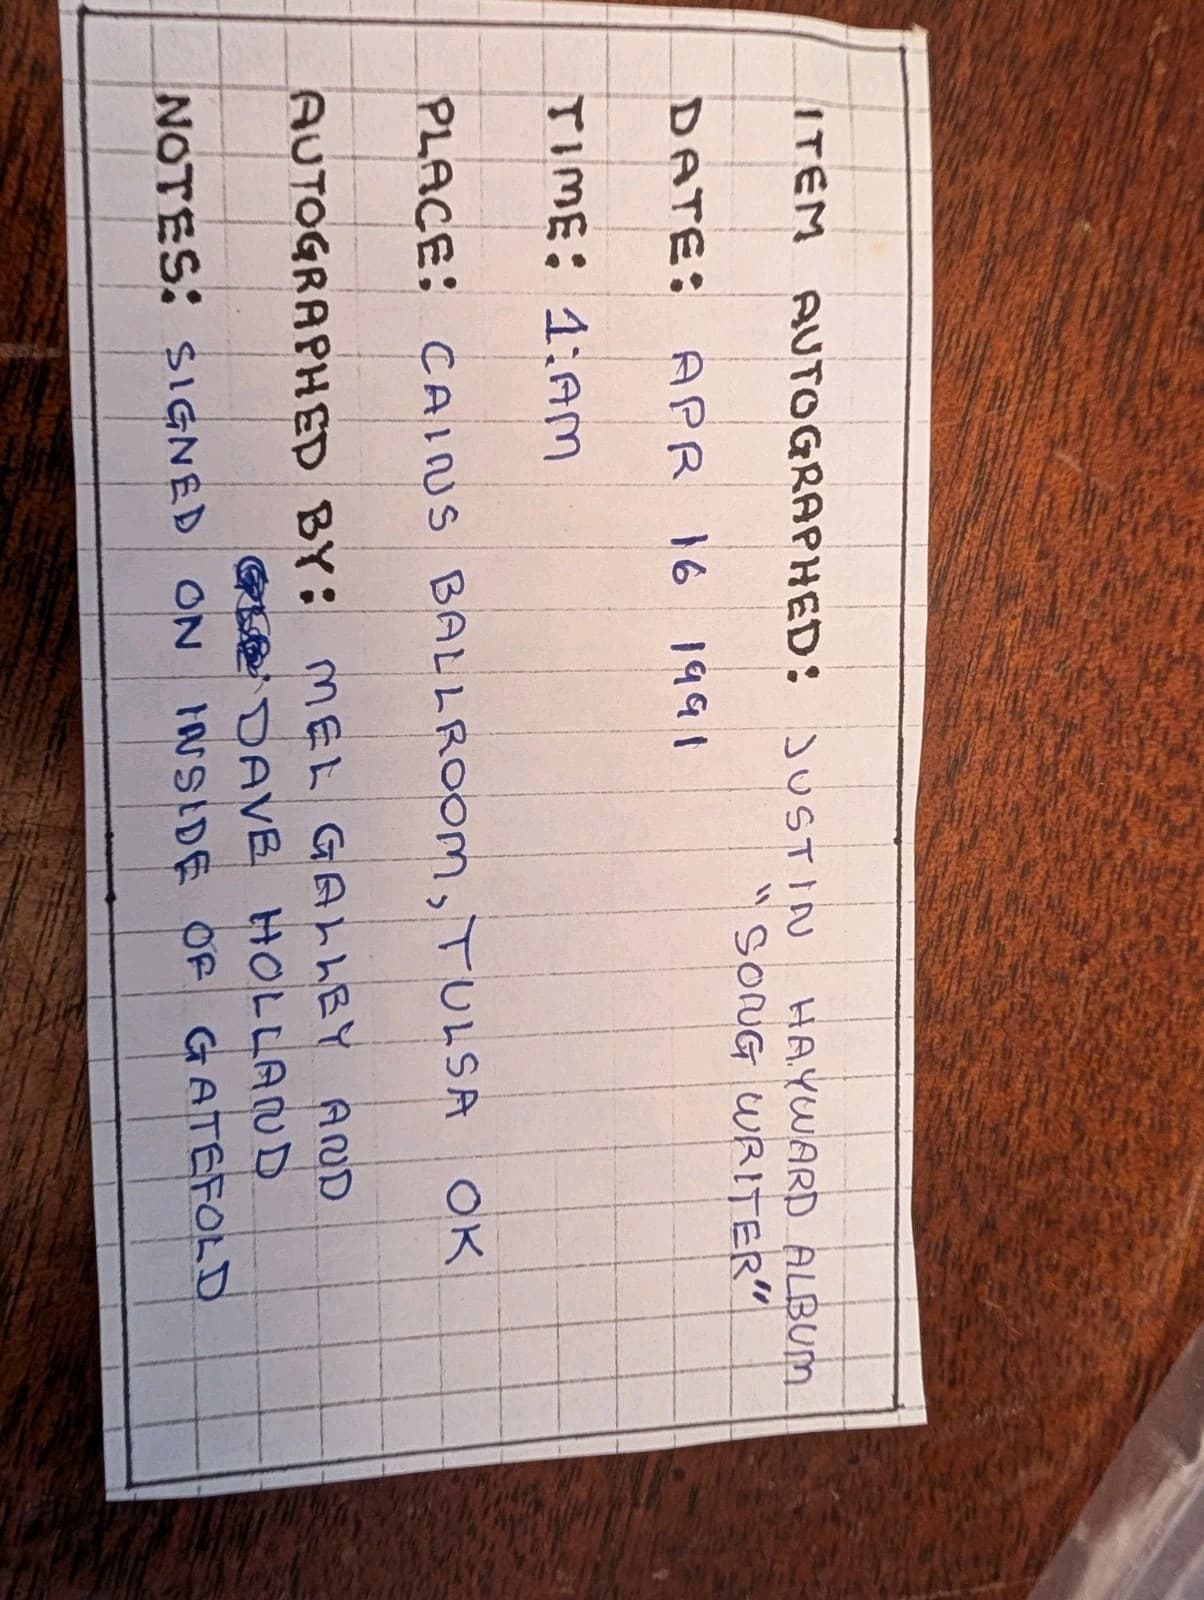 ITEM AUTOGRAPHED: JUSTIN HAYWARD ALBUM
"SONG WRITER"
DATE: APR 16 1991
TIME: 1:AM
PLACE: CAINS BALLROOM, TULSA OK
AUTOGRAPHED BY: MEL GALLEY AND
DAVE HOLLAND
NOTES: SIGNED ON INSIDE OF GATEFOLD